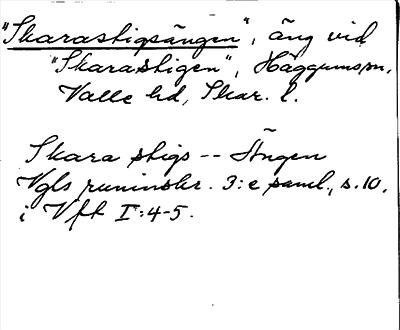 "Skarastigsängen", äng vid
"Skarastigen", Häggumssn,
Valle hd, Skar. l.
Skara stigs -- Ängen
Vgls runinskr. 3:e saml., s. 10,
i Vft I:4-5.